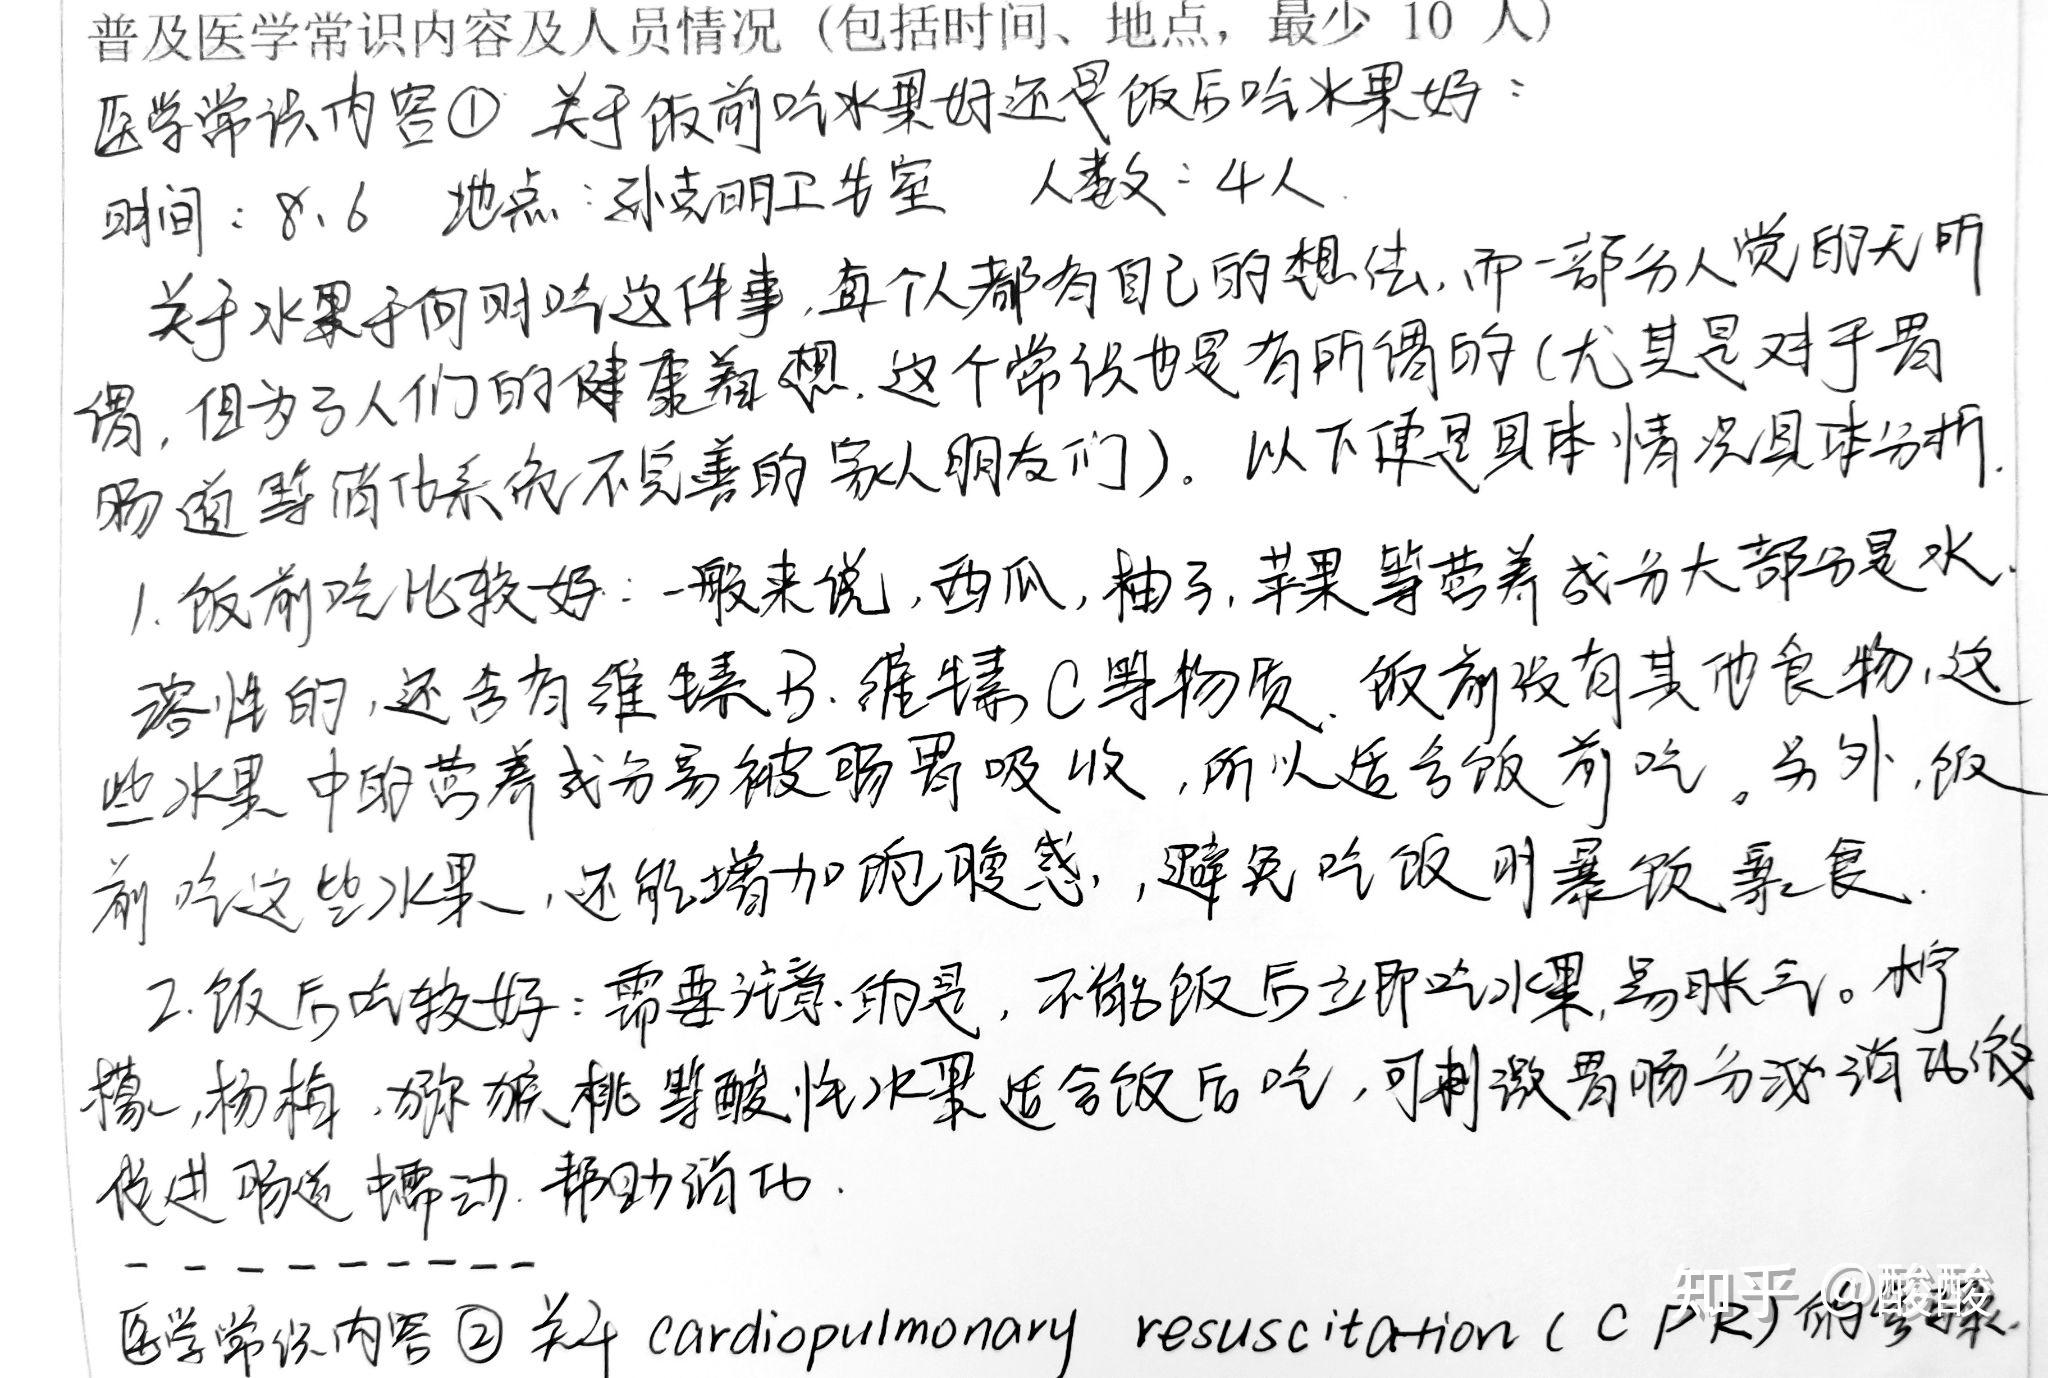 普及医学常识内容及人员情况（包括时间、地点，最少 10 人）
医学常识内容① 关于饭前吃水果好还是饭后吃水果好：
时间：8.6 地点：孙克明卫生室 人数：4人.
关于水果于何时吃这件事，每个人都有自己的想法，而一部分人觉的无所
谓，但为了人们的健康着想，这个常识也是有所谓的（尤其是对于胃
肠道等消化系统不完善的家人朋友们）。以下便是具体情况具体分析.
1.饭前吃比较好：一般来说，西瓜，柚子，苹果等营养成分大部分是水
溶性的，还含有维生素B、维生素C等物质.饭前没有其他食物，这
些水果中的营养成分易被肠胃吸收，所以适合饭前吃。另外，饭
前吃这些水果，还能增加饱腹感，避免吃饭时暴饮暴食.
2.饭后吃较好：需要注意的是，不能饭后立即吃水果，易胀气。柠
檬，杨梅，猕猴桃等酸性水果适合饭后吃，可刺激胃肠分泌消化液
促进肠道蠕动.帮助消化.
---------
医学常识内容② 关于 cardiopulmonary resuscitation（CPR）的
知乎 @酸酸